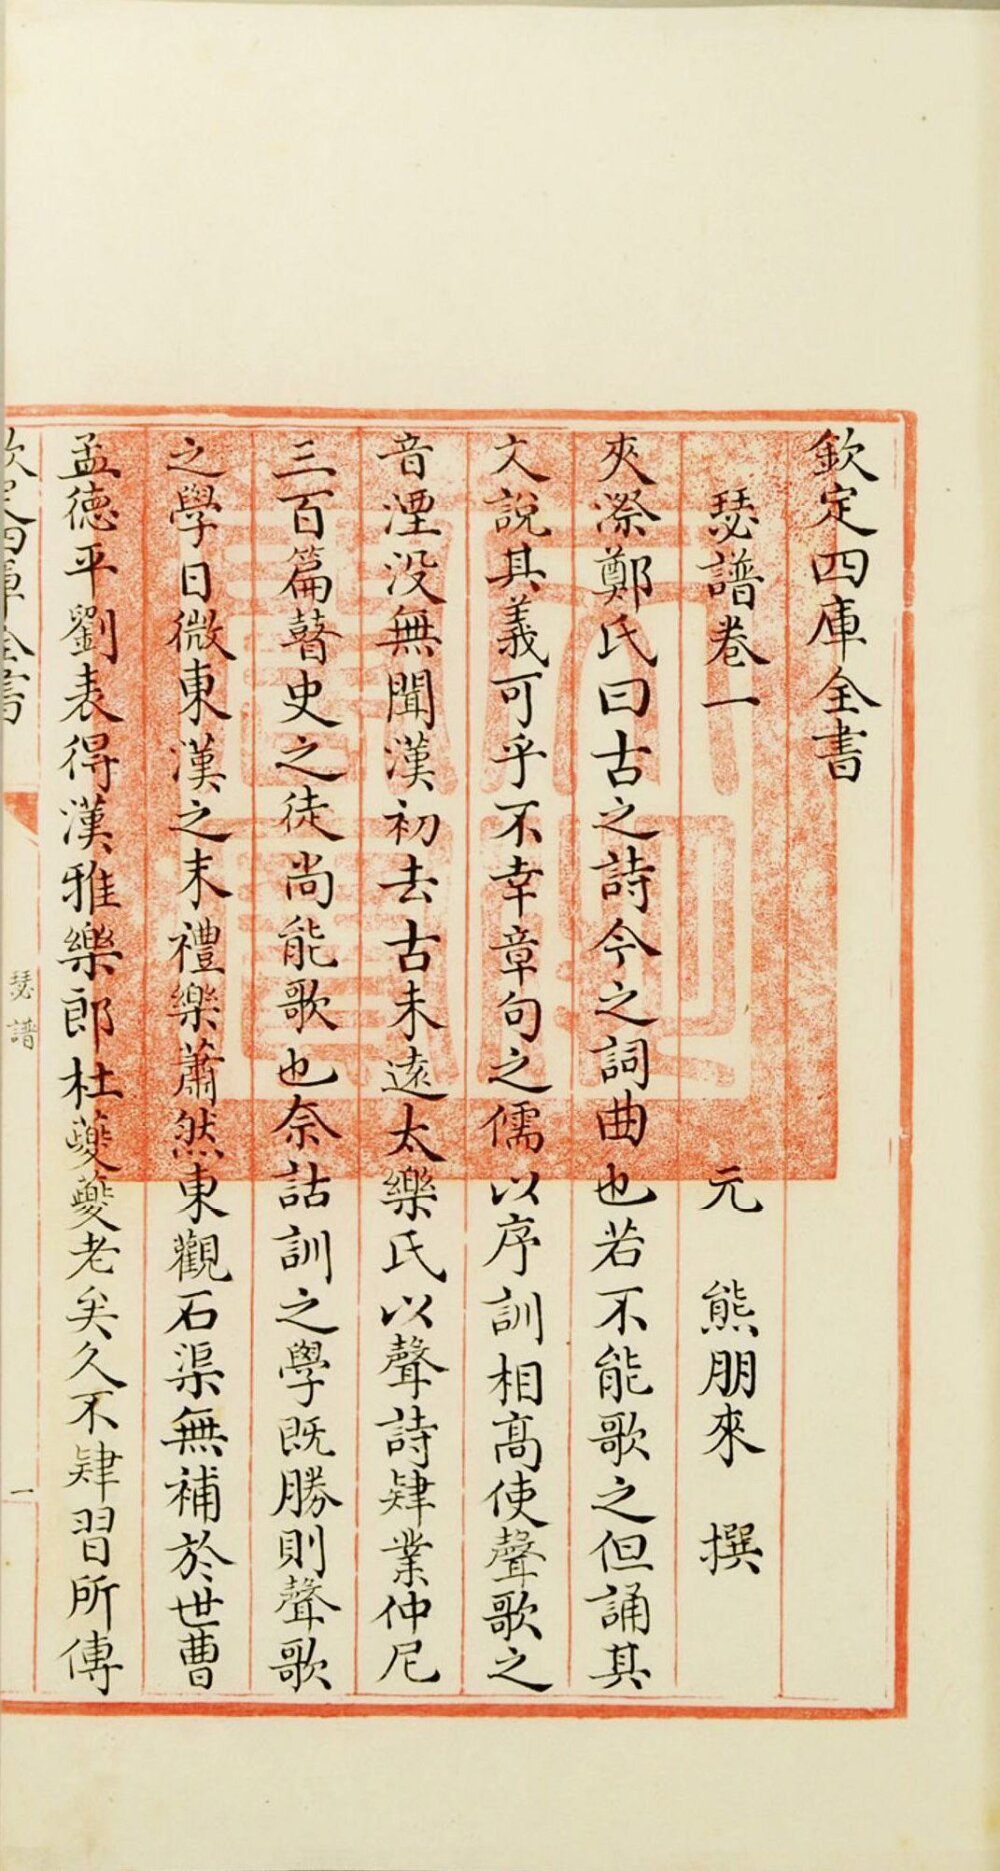 欽定四庫全書
瑟譜卷一
元 熊朋來 撰
夾漈鄭氏曰古之詩今之詞曲也若不能歌之但誦其
文說其義可乎不幸章句之儒以序訓相髙使聲歌之
音湮没無聞漢初去古未逺太樂氏以聲詩肄業仲尼
三百篇瞽史之徒尚能歌也奈詁訓之學既勝則聲歌
之學日微東漢之末禮樂蕭然東觀石渠無補於世曹
孟德平劉表得漢雅樂郎杜夔夔老矣久不肄習所傳
欽定四庫全書
瑟譜
一